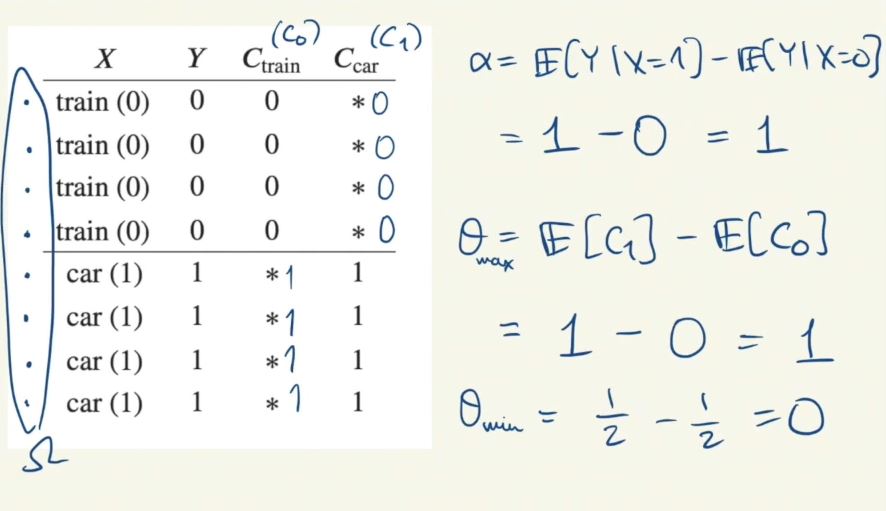 (C₀) (C₁)
X Y C_train C_car
train (0) 0 0 * 0
train (0) 0 0 * 0
train (0) 0 0 * 0
train (0) 0 0 * 0
car (1) 1 * 1 1
car (1) 1 * 1 1
car (1) 1 * 1 1
car (1) 1 * 1 1
Ω
α = 𝔼[Y|X=1] - 𝔼[Y|X=0]
= 1 - 0 = 1
θ_max = 𝔼[C₁] - 𝔼[C₀]
= 1 - 0 = 1
θ_min = 1/2 - 1/2 = 0